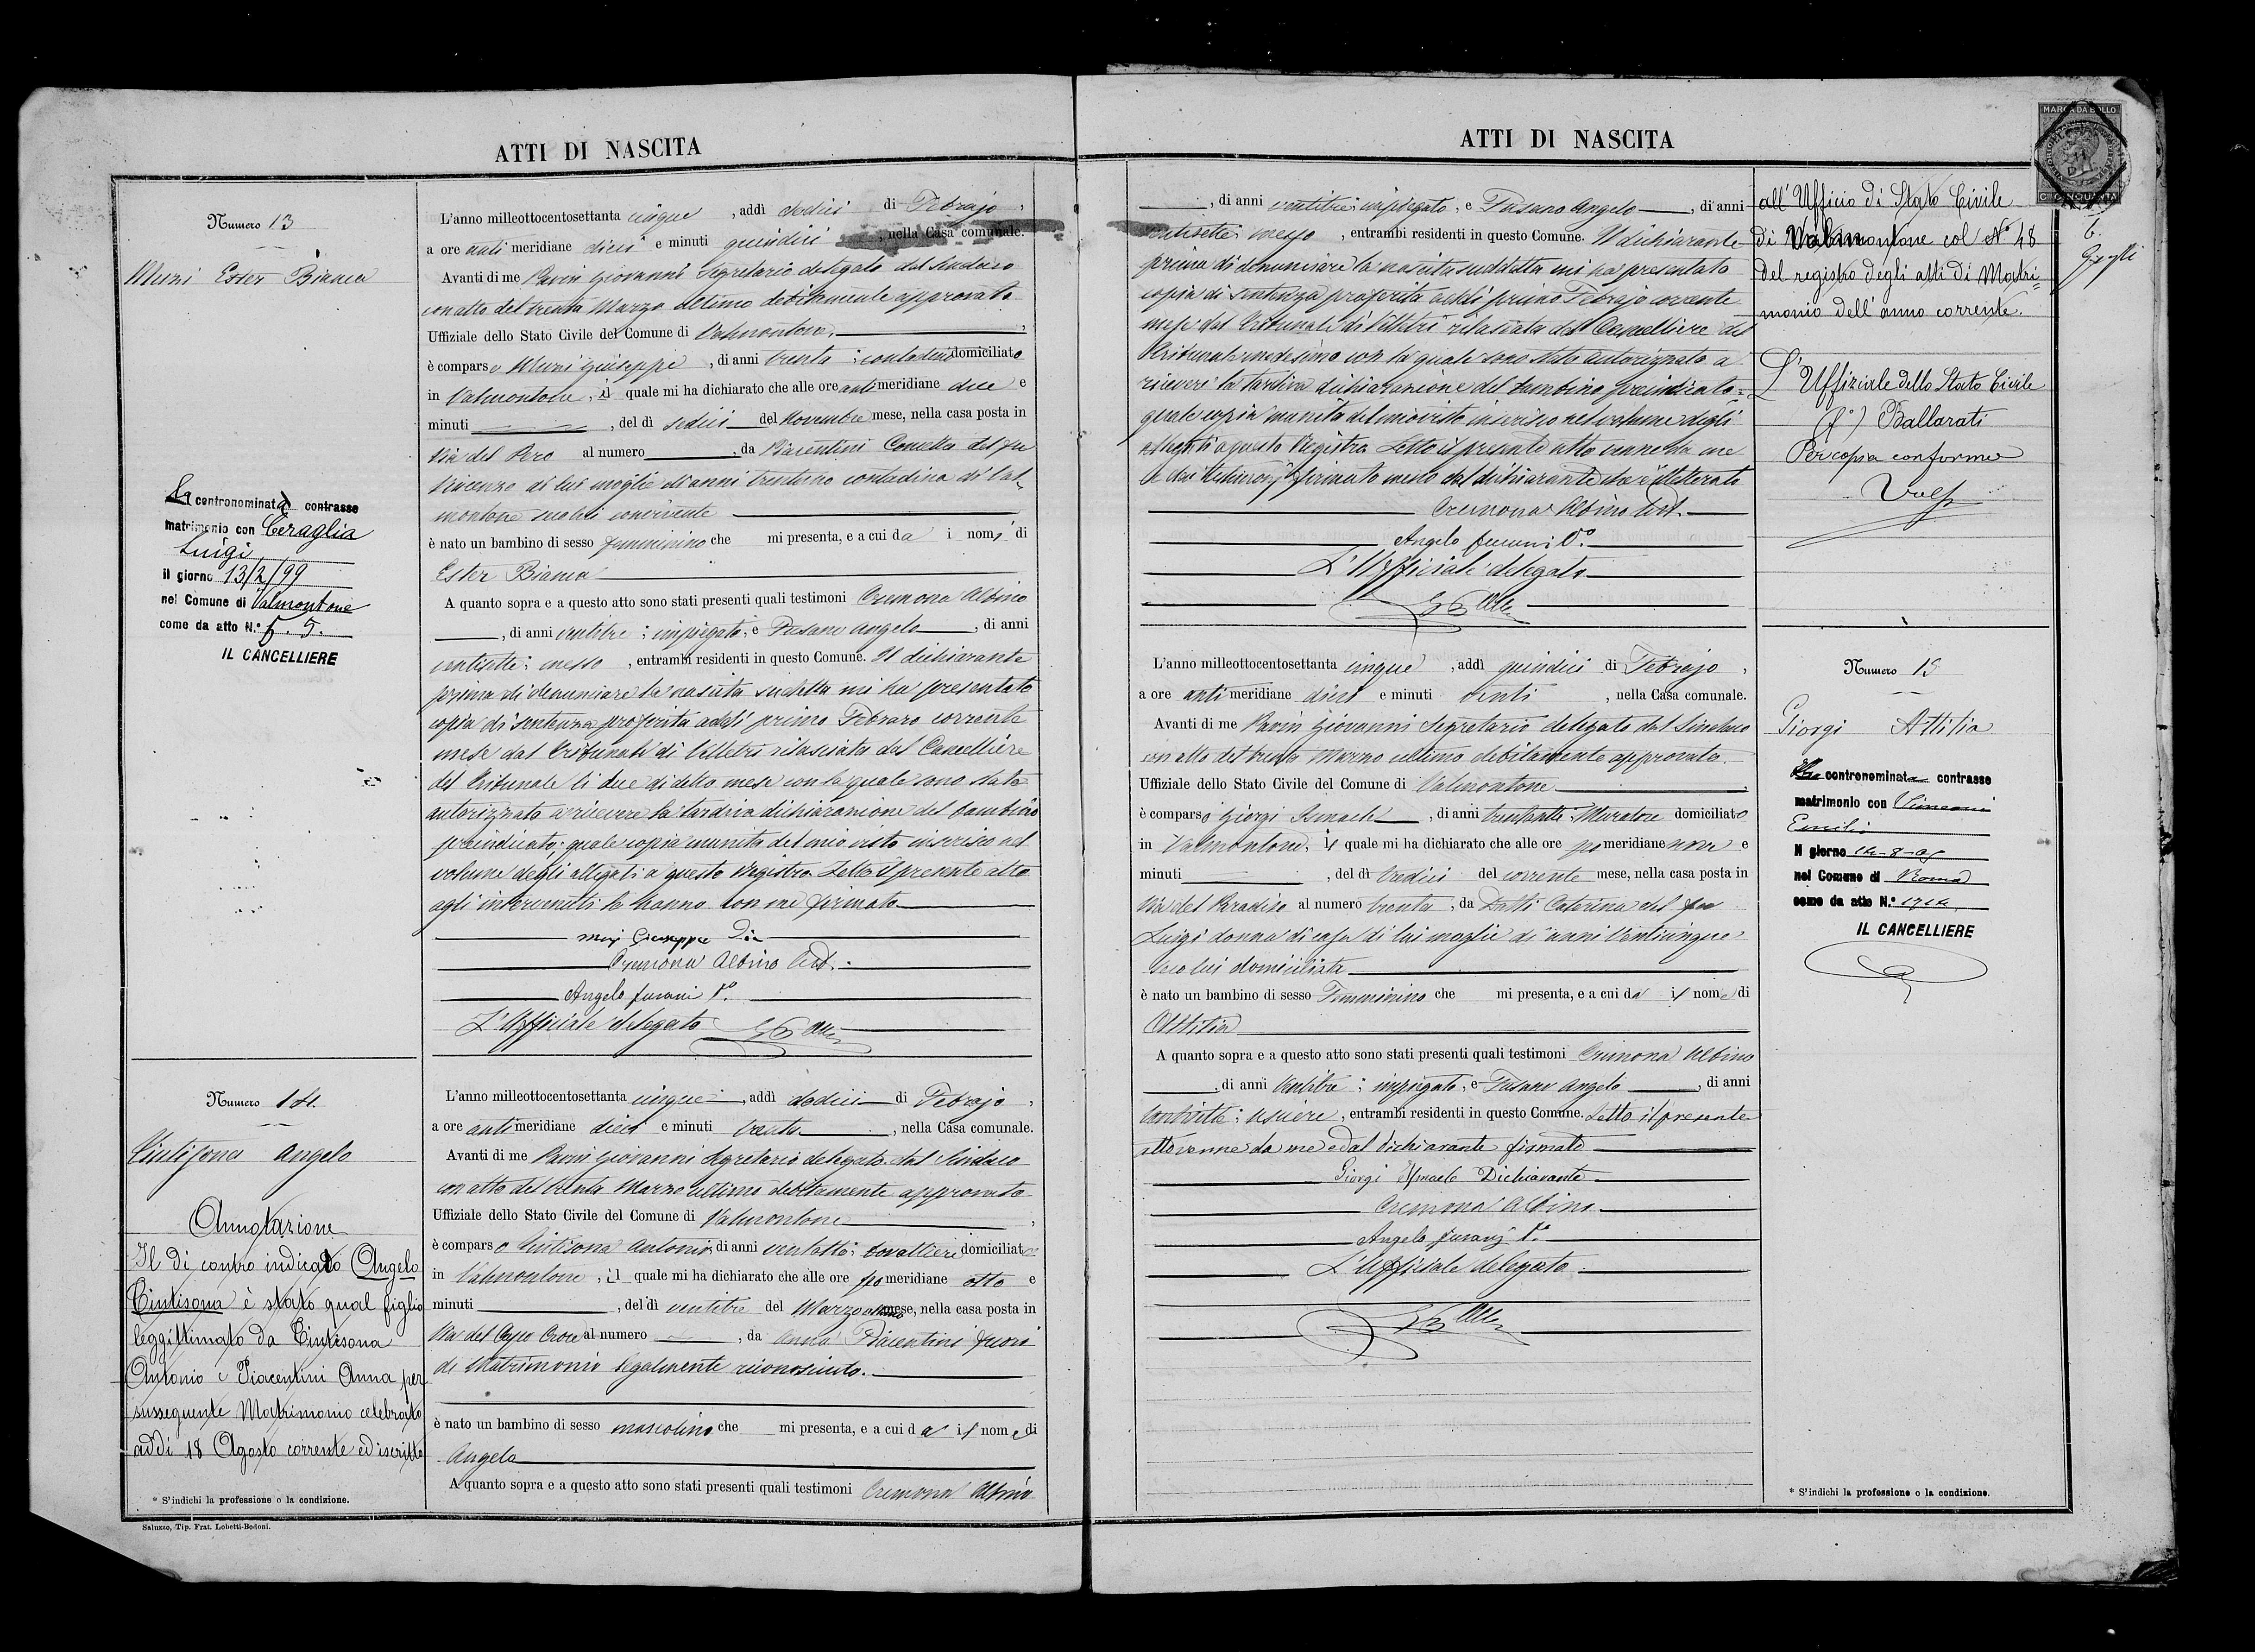 ATTI DI NASCITA
Numero 13
Muni Ester Bianca
La contronominata contrasse
matrimonio con Ceraglia
Luigi
il giorno 13/2/99
nel Comune di Valmontone
come da atto N.° 5.
IL CANCELLIERE
L'anno millottocentosettanta cinque, addì dodici di Febrajo,
a ore anti meridiane dieci e minuti quindici, nella Casa comunale.
Avanti di me Pavin Giovanni Segretario delegato dal Sindaco
con atto del trenta Marzo ultimo debitamente approvato
Uffiziale dello Stato Civile del Comune di Valmontone,
è comparso Muni Giuseppe, di anni trenta; contadino domiciliato
in Valmontone, il quale mi ha dichiarato che alle ore anti meridiane due e
minuti, del dì sedici del Novembre mese, nella casa posta in
Via del Pero al numero, da Piacentini Concetta del fu
Vincenzo di lui moglie di anni trentuno contadina di Val-
montone seco lui convivente
è nato un bambino di sesso femminino che mi presenta, e a cui da i nomi di
Ester Bianca
A quanto sopra e a questo atto sono stati presenti quali testimoni Cremona Albino
, di anni ventitre; impiegato, e Fusano Angelo, di anni
ventisette; messo, entrambi residenti in questo Comune. Il dichiarante
prima di denunciare la nascita sudetta mi ha presentato
copia di sentenza proferita addì primo Febraro corrente
mese dal Tribunale di Velletri rilasciata dal Cancelliere
del Tribunale li due di detto mese con la quale sono stato
autorizzato a ricevere la tardiva dichiarazione del bambino
preindicato; quale copia munita del mio visto inserisco nel
volume degli allegati a questo Registro. Letto il presente atto
agli intervenuti lo hanno con me firmato
Giuseppe
Cremona Albino Test.
Angelo fusani T.°
L'Ufficiale delegato
Numero 14.
Cintisona Angelo
Annotazione
Il di contro indicato Angelo
Cintisona è stato qual figlio
leggittimato da Cintisona
Antonio e Piacentini Anna per
susseguente Matrimonio celebrato
addì 18 Agosto corrente ed iscritto
* S'indichi la professione o la condizione.
Saluzzo, Tip. Frat. Lobetti-Bodoni.
L'anno millottocentosettanta cinque, addì dodici di Febrajo,
a ore anti meridiane dieci e minuti trenta, nella Casa comunale.
Avanti di me Pavin Giovanni Segretario delegato dal Sindaco
con atto del trenta Marzo ultimo debitamente approvato
Uffiziale dello Stato Civile del Comune di Valmontone,
è comparso Cintisona Antonio, di anni ventotto; domiciliato
in Valmontone, il quale mi ha dichiarato che alle ore po meridiane otto e
minuti, del dì ventitre del Marzo mese, nella casa posta in
Via del al numero, da Anna Piacentini fuori
di Matrimonio legalmente riconosciuto.
è nato un bambino di sesso mascolino che mi presenta, e a cui da il nome di
Angelo
A quanto sopra e a questo atto sono stati presenti quali testimoni Cremona Albino
ATTI DI NASCITA
MARCA DA BOLLO
, di anni ventitre; impiegato, e Fusano Angelo, di anni
ventisette; messo, entrambi residenti in questo Comune. Il dichiarante
prima di denunciare la nascita suddetta mi ha presentato
copia di sentenza proferita addì primo Febrajo corrente
mese dal Tribunale di Velletri rilasciata dal Cancelliere del
Tribunale medesimo con la quale sono stato autorizzato a
ricevere la tardiva dichiarazione del bambino preindicato:
quale copia munita del mio visto inserisco nel volume degli
allegati a questo Registro. Letto il presente atto venne da me
e dai testimonj firmato meno dal dichiarante che è illetterato
Cremona Albino Test.
Angelo fusani T.°
L'Ufficiale delegato
all'Ufficio di Stato Civile
di Valmontone col N° 48
del registro degli atti di Matri=
monio dell'anno corrente.
L'Uffiziale dello Stato Civile
(f°) Ballarati
Per copia conforme
L'anno millottocentosettanta cinque, addì quindici di Febrajo,
a ore anti meridiane dieci e minuti venti, nella Casa comunale.
Avanti di me Pavin Giovanni Segretario delegato dal Sindaco
con atto del trenta Marzo ultimo debitamente approvato.
Uffiziale dello Stato Civile del Comune di Valmontone,
è comparso Giorgi Ismaele, di anni; Muratore domiciliato
in Valmontone, il quale mi ha dichiarato che alle ore po meridiane nove e
minuti, del dì tredici del corrente mese, nella casa posta in
Via del Paradiso al numero trenta, da Datti Caterina del fu
Luigi donna di casa di lui moglie di anni venticinque
seco lui domiciliata
è nato un bambino di sesso Femminino che mi presenta, e a cui da il nome di
Attilia
A quanto sopra e a questo atto sono stati presenti quali testimoni Cremona Albino
, di anni ventitre; impiegato, e Fusano Angelo, di anni
ventisette; usciere, entrambi residenti in questo Comune. Letto il presente
atto venne da me e dal dichiarante firmato
Giorgi Ismaele Dichiarante
Cremona Albino
Angelo fusani T.°
L'Ufficiale delegato
Numero 15
Giorgi Attilia
La contronominata contrasse
matrimonio con Simeoni
Emilio
Il giorno
nel Comune di Roma
come da atto N.°
IL CANCELLIERE
* S'indichi la professione o la condizione.